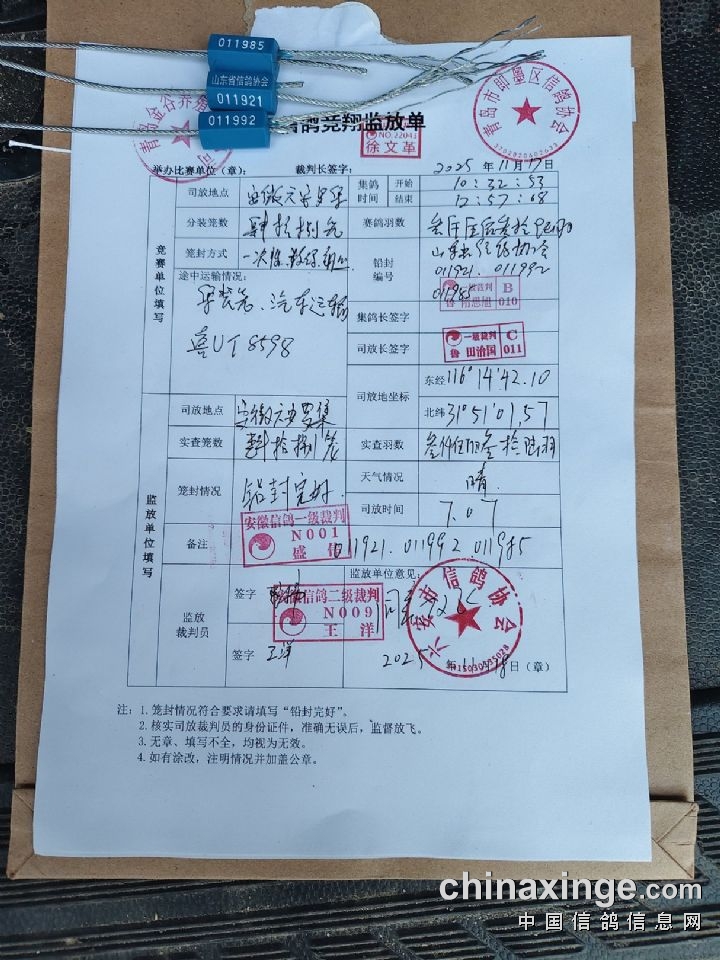 011985
山东省信鸽协会
011921
011992
青岛市即墨区信鸽协会
3702820602633
信鸽竞翔监放单
NO.22043
徐文革
举办比赛单位(章): 裁判长签字: 2025年11月17日
竞赛单位填写
司放地点 安徽六安罗集
集鸽时间 开始 10:32:53
结束 12:57:08
分装笼数 肆拾捌笼
赛鸽羽数
笼封方式
铅封编号
011921. 011992
011985
途中运输情况:
汽车运输
UT8598
B
010
集鸽长签字
司放长签字
鲁 一级裁判 田治国 C 011
司放地坐标 东经 116°14'42.10
北纬 31°51'01.57
监放单位填写
司放地点 安徽六安罗集
实查笼数 肆拾捌笼
实查羽数
笼封情况 铅封完好.
天气情况 晴.
司放时间 7.07
安徽信鸽一级裁判
N001
盛
备注 011921.011992.011985
监放裁判员
签字
监放单位意见:
安徽信鸽二级裁判
N009
王 洋
签字 王洋
六安市信鸽协会
2025年11.18日(章)
注: 1.笼封情况符合要求请填写“铅封完好”。
2.核实司放裁判员的身份证件,准确无误后,监督放飞。
3.无章、填写不全,均视为无效。
4.如有涂改,注明情况并加盖公章。
chinaxinge.com
中国信鸽信息网